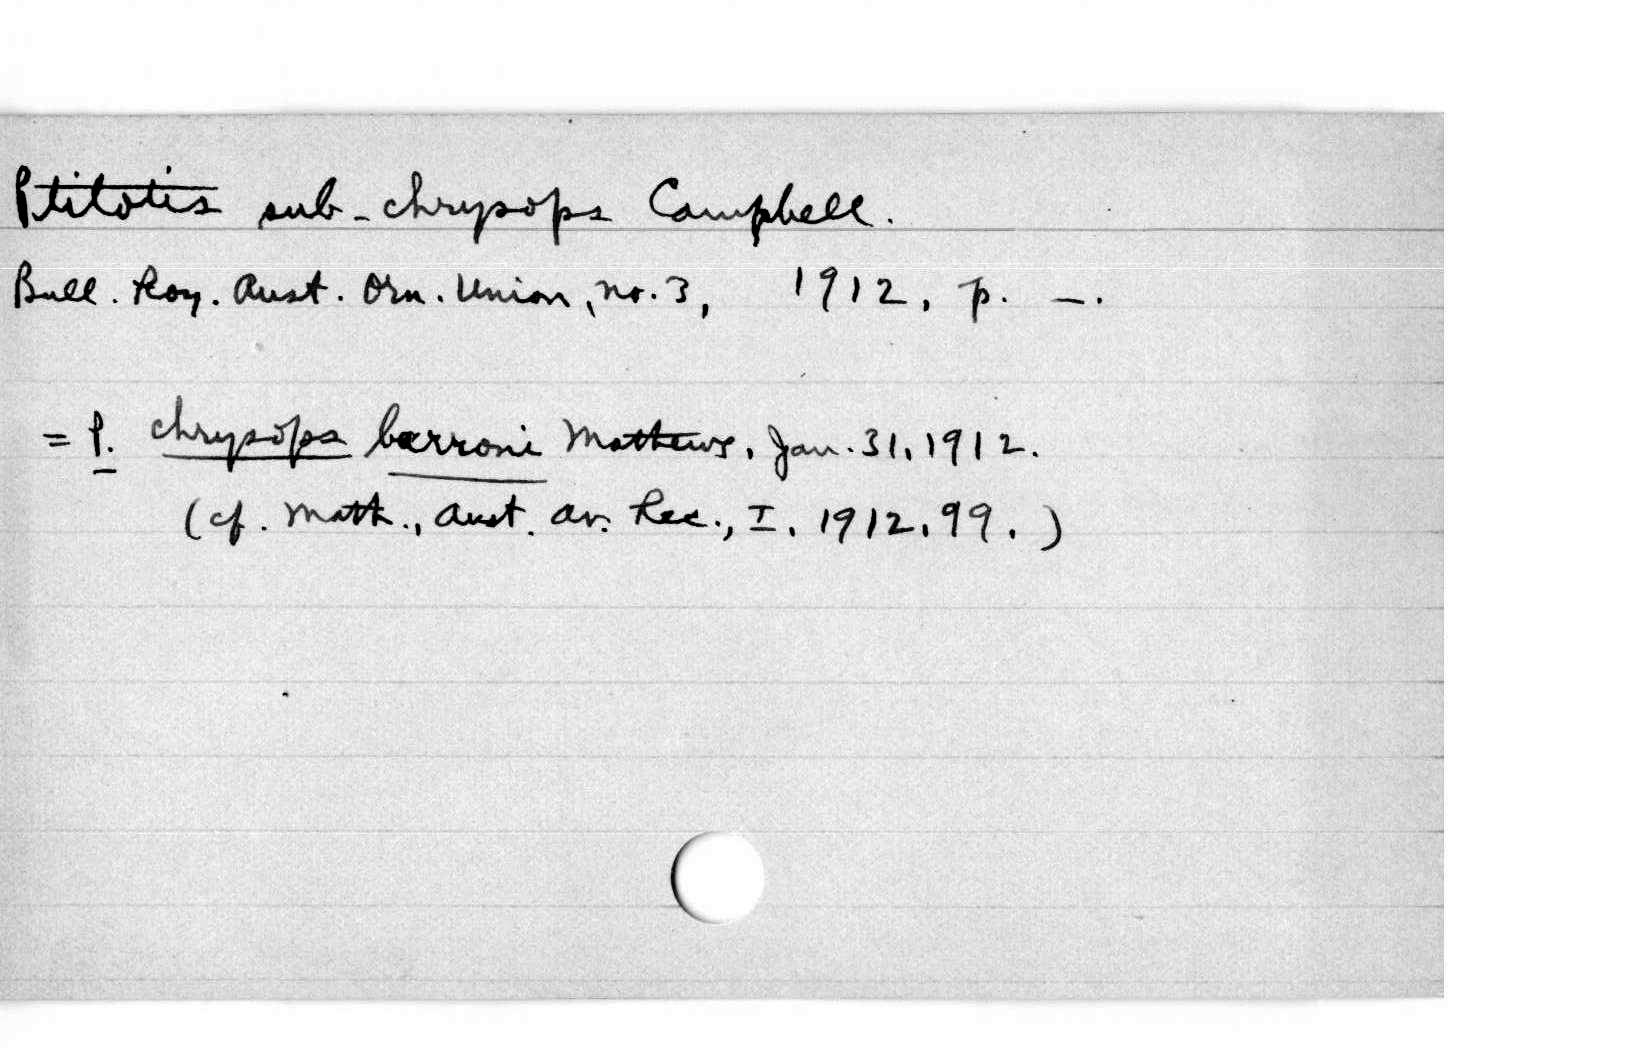 Ptilotis sub-chrysops Campbell.
Bull. Roy. Aust. Orn. Union, no. 3, 1912, p. —.
= P. chrysops barroni Mathews, Jan. 31, 1912.
(cf. Math., Aust. Av. Rec., I, 1912, 99.)